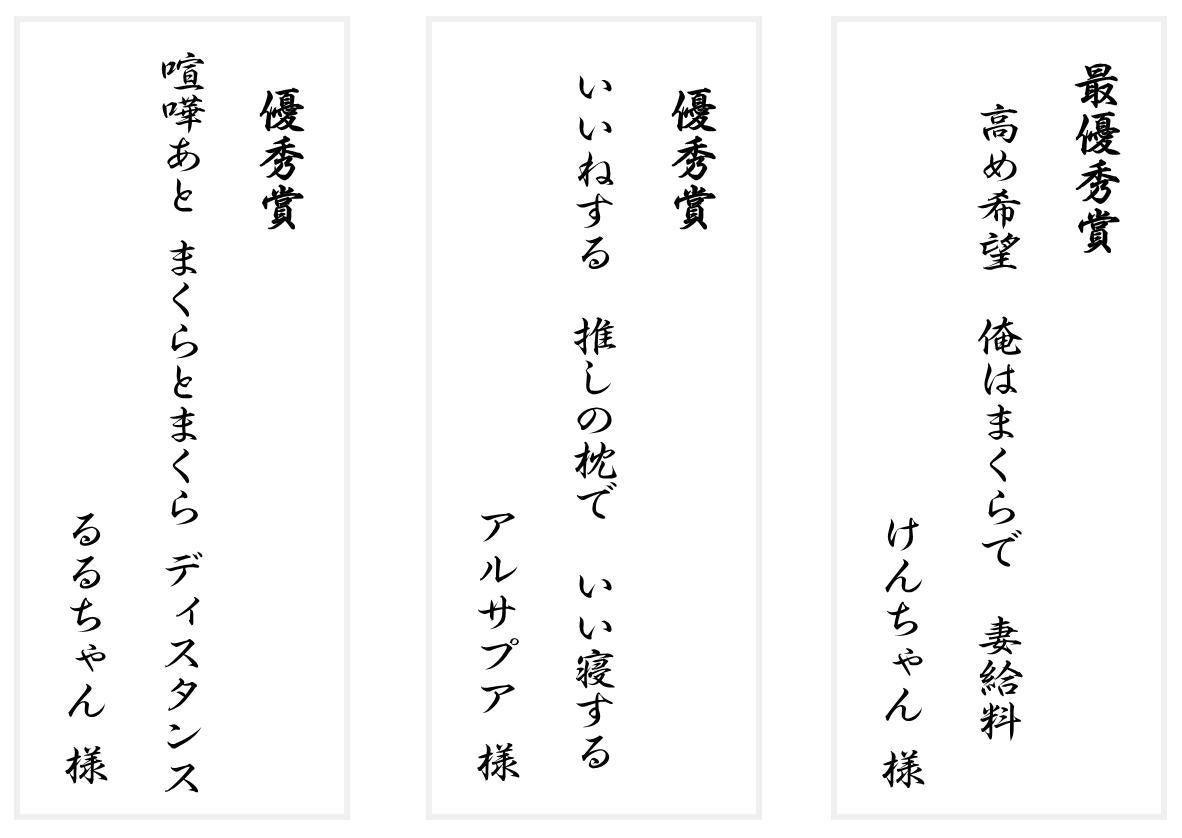 最優秀賞
高め希望　俺はまくらで　妻給料
けんちゃん 様
優秀賞
いいねする　推しの枕で　いい寝する
アルサプア 様
優秀賞
喧嘩あと まくらとまくら ディスタンス
るるちゃん 様